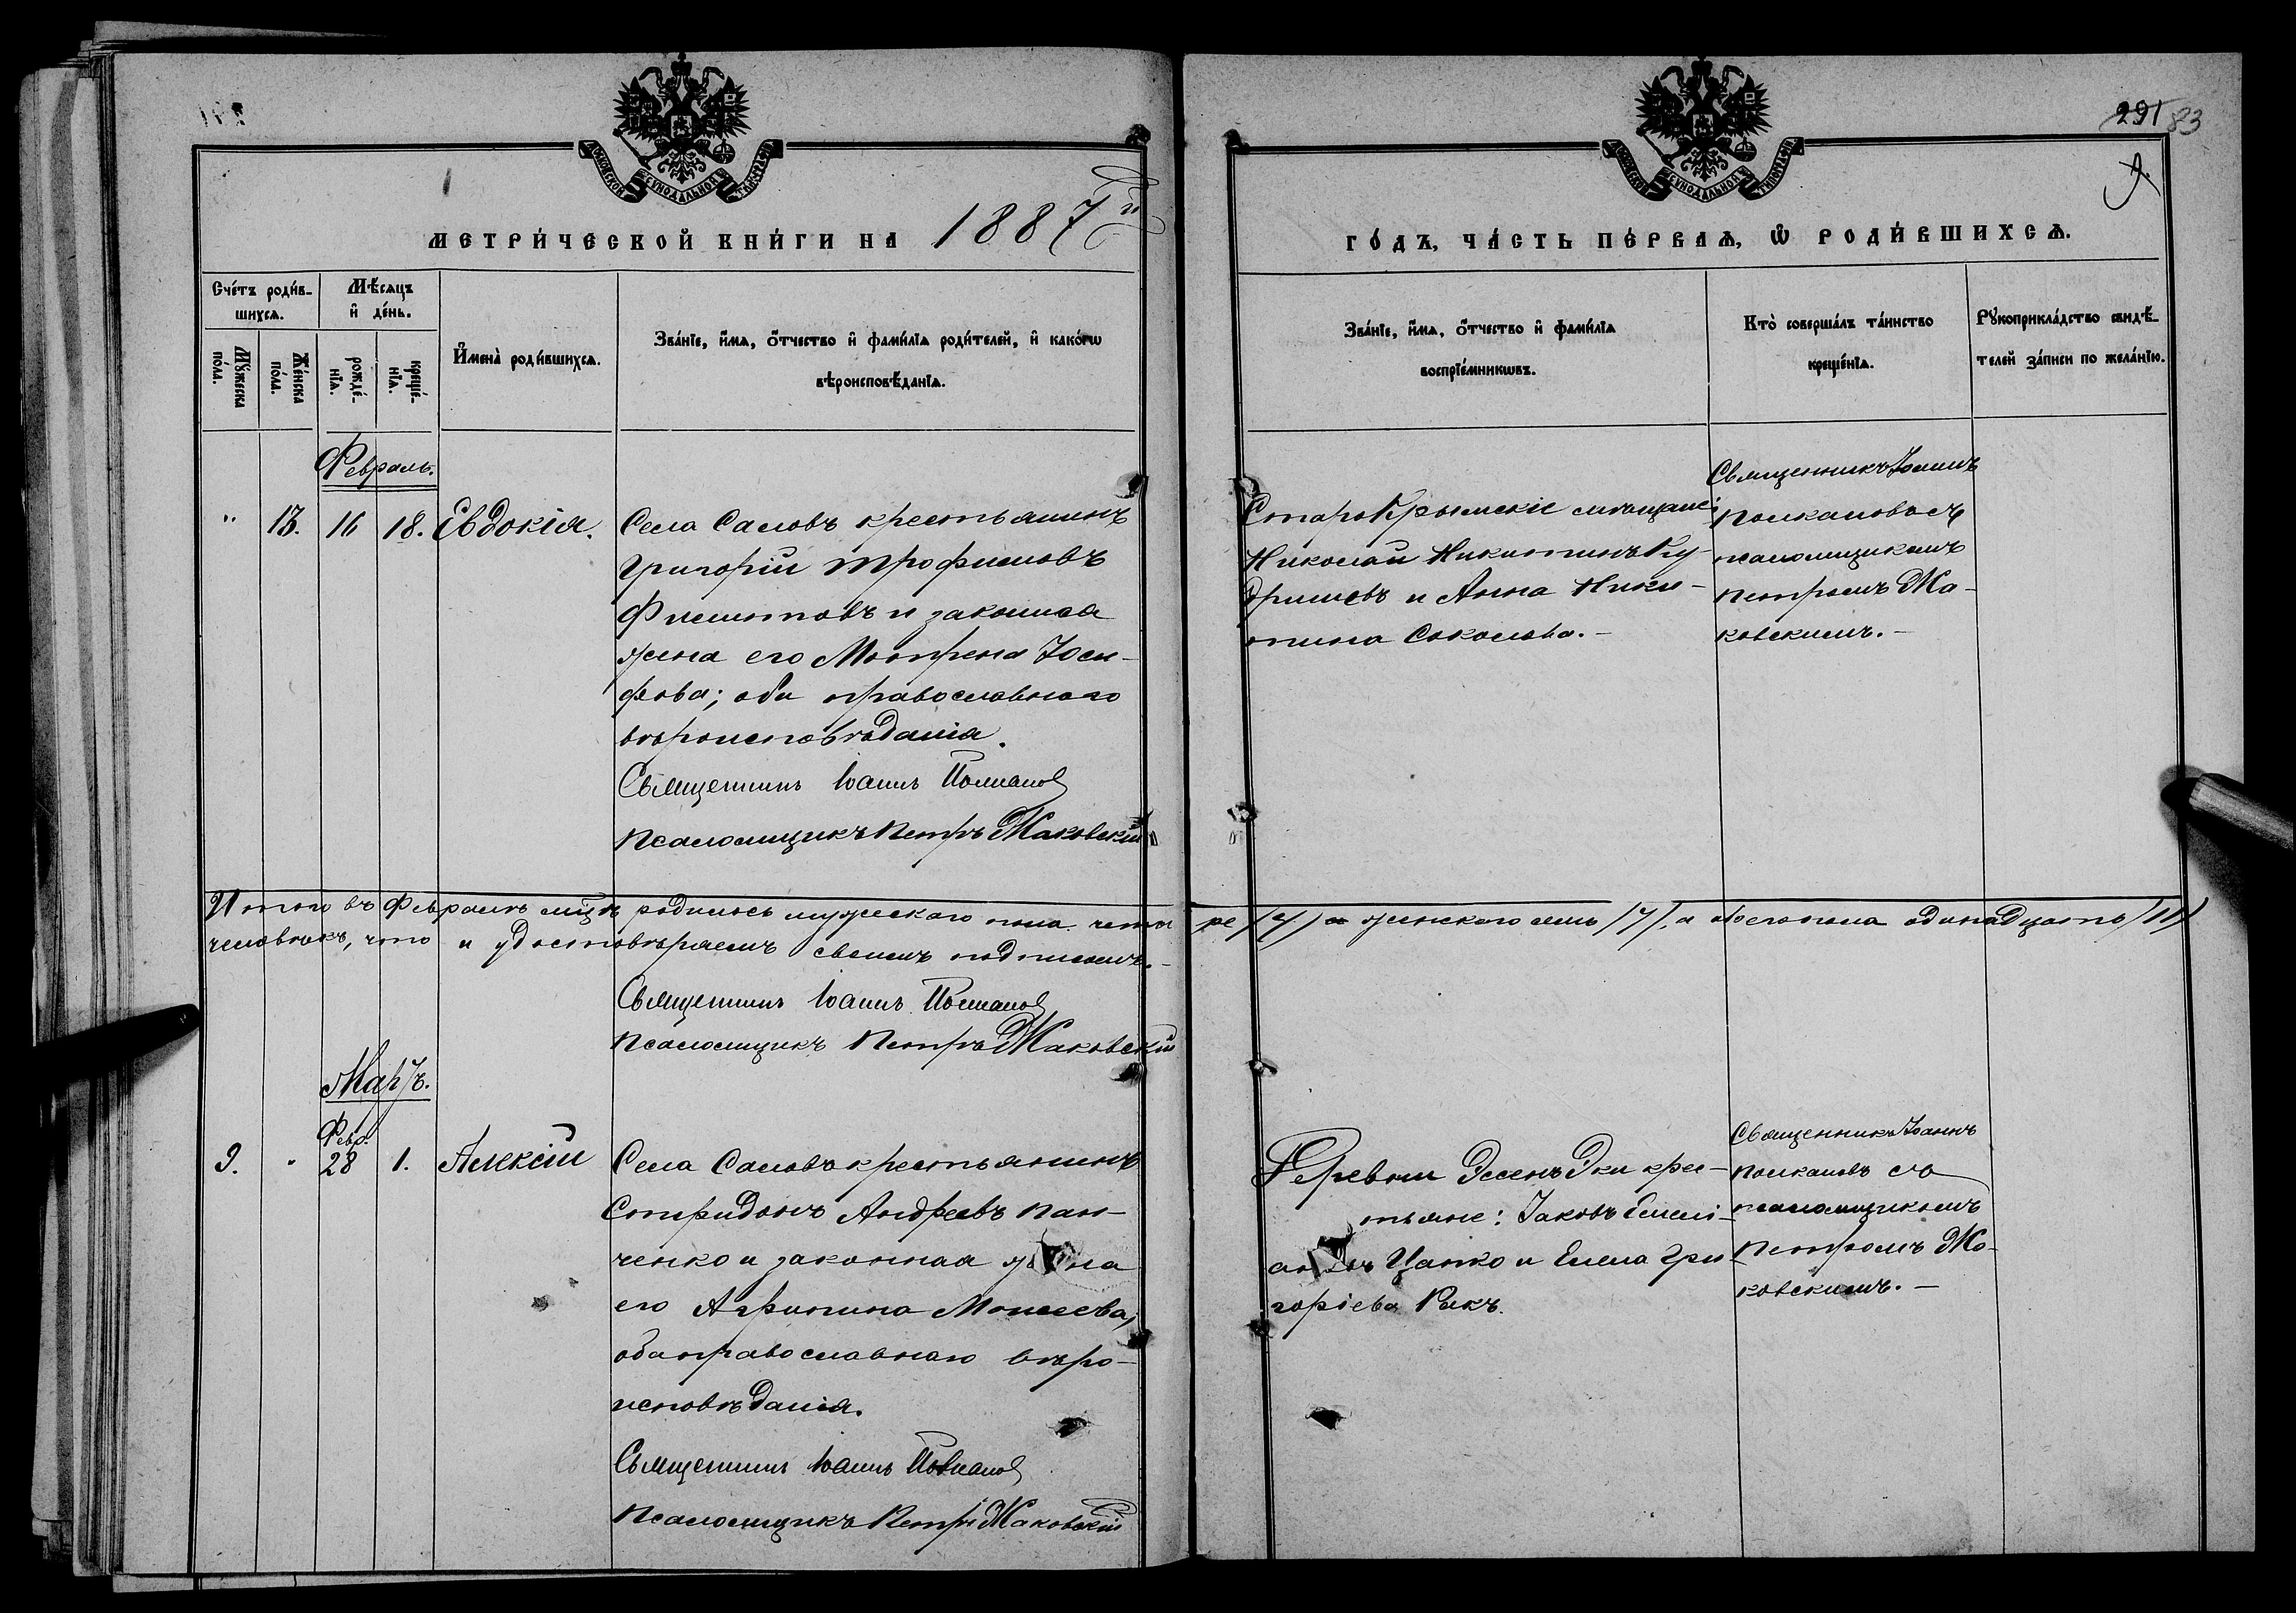 291 83
9.
МЕТРИ́ЧЕСКОЙ КНИ́ГИ НА 1887й
ГО́ДЪ, ЧА́СТЬ ПЕ́РВАѦ, Ѽ РОДИ́ВШИХСѦ.
Сче́тъ роди́в-
шихсѧ.
Мꙋ́жеска по́ла.
Же́нска по́ла.
Мѣ́сяцъ
и҆ де́нь.
рожде́-
нїѧ.
креще́-
нїѧ.
И҆мена̀ роди́вшихсѧ.
Зва́нїе, и҆́мѧ, ѻ҆́тчество и҆ фами́лїѧ роди́телей, и҆ како́гѡ
вѣроисповѣ́данїѧ.
Зва́нїе, и҆́мѧ, ѻ҆́тчество и҆ фами́лїѧ
воспрїе́мникѡвъ.
Кто̀ соверша́лъ та́инство
креще́нїѧ.
Рꙋкоприкла́дство свидѣ́-
телей за́писи по жела́нїю.
Февраль.
" 13. 16 18. Евдокія.
Села Саловъ крестьянинъ
Григорій Трофимовъ
Филиповъ и законная
жена его Матрена Іоси-
фова; оба православнаго
вѣроисповѣданія.
Священникъ Іоаннъ Полкановъ
Псаломщикъ Петръ Жаковскій
СтароКрымскіе мѣщане:
Николай Никитинъ Ку-
дришевъ и Анна Ники-
тина Соколова.-
Священникъ Іоаннъ
Полкановъ съ
псаломщикомъ
Петромъ Жа-
ковскимъ.-
Итого въ Февралѣ мцѣ родилось мужескаго пола четы ре /4/ а женскаго семь /7/, а обоего пола одинадцать /11/
человѣкъ, что и удостовѣряемъ своимъ подписомъ.-
Священникъ Іоаннъ Полкановъ
Псаломщикъ Петръ Жаковскій
Мартъ.
Февр.
9. " 28 1. Алексій
Села Саловъ крестьянинъ
Спиридонъ Андреевъ Пан-
ченко и законная жена
его Агрипина Моисеева,
оба православнаго вѣро-
исповѣданія.
Священникъ Іоаннъ Полкановъ
Псаломщикъ Петръ Жаковскій
Деревни Эссенъ Эки крес-
тьяне: Іаковъ Емелі-
ановъ Цапко и Елена Гри
горіева Ракъ.
Священникъ Іоаннъ
Полкановъ съ
псаломщикомъ
Петромъ Жа-
ковскимъ.-